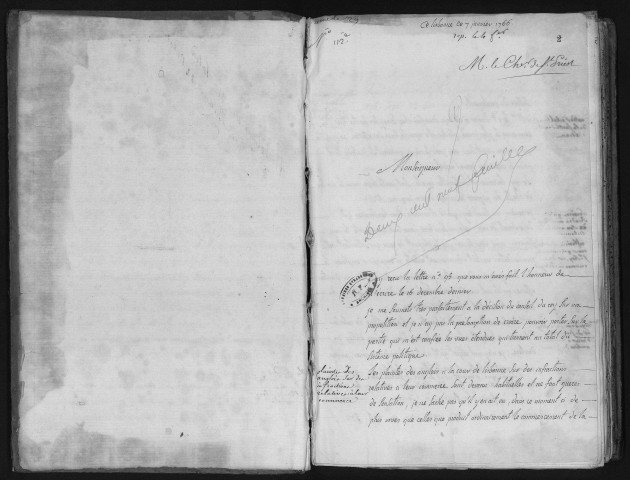 a lisbonne le 7 janvier 1766
rep. le 4 fev.
N.º 112
2
M. le Chev. de St. Priest
Monseigneur
Deux cent neuf feuilles
J'ay receu la lettre nº 95 que vous m'avez fait l'honneur de
m'ecrire le 16 decembre dernier
je me soumets tres parfaitement a la decision du conseil du roy sur ma
proposition et je n'ay pas la présomption de croire pouvoir porter sur la
partie qui m'est confiée les vues etendues qui tiennent au total du
sisteme politique
plainte des
anglois sur des
infractions
relatives a leur
commerce
Les plaintes des anglois a la cour de lisbonne sur des infractions
relatives a leur commerce sont devenu habituelles et ne font gueres
de sensation, je ne sache pas qu'il y en ait eu dans ce moment ci de
plus vives que celles que produit ordinairement le commencement de la